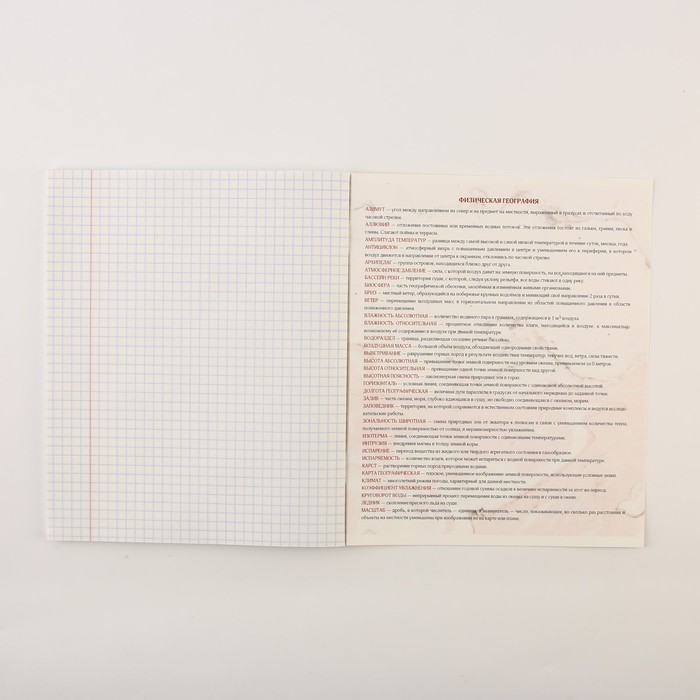 ФИЗИЧЕСКАЯ ГЕОГРАФИЯ
АЗИМУТ — угол между направлением на север и на предмет на местности, выраженный в градусах и отсчитанный по ходу
часовой стрелки.
АЛЛЮВИЙ — отложения постоянных или временных водных потоков. Эти отложения состоят из гальки, гравия, песка и
глины. Слагают поймы и террасы.
АМПЛИТУДА ТЕМПЕРАТУР — разница между самой высокой и самой низкой температурой в течение суток, месяца, года.
АНТИЦИКЛОН — атмосферный вихрь с повышенным давлением в центре и уменьшением его к периферии, в котором
воздух движется в направлении от центра к окраинам, отклоняясь по часовой стрелке.
АРХИПЕЛАГ — группа островов, находящихся близко друг от друга.
АТМОСФЕРНОЕ ДАВЛЕНИЕ — сила, с которой воздух давит на земную поверхность, на все находящиеся на ней предметы.
БАССЕЙН РЕКИ — территория суши, с которой, следуя уклону рельефа, все воды стекают в одну реку.
БИОСФЕРА — часть географической оболочки, заселённая и изменённая живыми организмами.
БРИЗ — местный ветер, образующийся на побережье крупных водоёмов и меняющий своё направление 2 раза в сутки.
ВЕТЕР — перемещение воздушных масс в горизонтальном направлении из областей повышенного давления в области
пониженного давления.
ВЛАЖНОСТЬ АБСОЛЮТНАЯ — количество водяного пара в граммах, содержащееся в 1 м³ воздуха.
ВЛАЖНОСТЬ ОТНОСИТЕЛЬНАЯ — процентное отношение количества влаги, находящейся в воздухе, к максимально
возможному её содержанию в воздухе при данной температуре.
ВОДОРАЗДЕЛ — граница, разделяющая соседние речные бассейны.
ВОЗДУШНАЯ МАССА — большой объём воздуха, обладающий однородными свойствами.
ВЫВЕТРИВАНИЕ — разрушение горных пород в результате воздействия температур, текучих вод, ветра, силы тяжести.
ВЫСОТА АБСОЛЮТНАЯ — превышение точки земной поверхности над уровнем океана, принимаемом за 0 метров.
ВЫСОТА ОТНОСИТЕЛЬНАЯ — превышение одной точки земной поверхности над другой.
ВЫСОТНАЯ ПОЯСНОСТЬ — закономерная смена природных зон в горах.
ГОРИЗОНТАЛЬ — условная линия, соединяющая точки земной поверхности с одинаковой абсолютной высотой.
ДОЛГОТА ГЕОГРАФИЧЕСКАЯ — величина дуги параллели в градусах от начального меридиана до заданной точки.
ЗАЛИВ — часть океана, моря, глубоко вдающаяся в сушу, но свободно соединяющаяся с океаном, морем.
ЗАПОВЕДНИК — территория, на которой сохраняются в естественном состоянии природные комплексы и ведутся исследо-
вательские работы.
ЗОНАЛЬНОСТЬ ШИРОТНАЯ — смена природных зон от экватора к полюсам в связи с уменьшением количества тепла,
получаемого земной поверхностью от солнца, и неравномерностью увлажнения.
ИЗОТЕРМА — линия, соединяющая точки земной поверхности с одинаковыми температурами.
ИНТРУЗИЯ — внедрение магмы в толщу земной коры.
ИСПАРЕНИЕ — переход вещества из жидкого или твёрдого агрегатного состояния в газообразное.
ИСПАРЯЕМОСТЬ — количество влаги, которое может испариться с водной поверхности при данной температуре.
КАРСТ — растворение горных пород природными водами.
КАРТА ГЕОГРАФИЧЕСКАЯ — плоское, уменьшенное изображение земной поверхности, использующее условные знаки.
КЛИМАТ — многолетний режим погоды, характерный для данной местности.
КОЭФФИЦИЕНТ УВЛАЖНЕНИЯ — отношение годовой суммы осадков к величине испаряемости за этот же период.
КРУГОВОРОТ ВОДЫ — непрерывный процесс перемещения воды из океана на сушу и с суши в океан.
ЛЕДНИК — скопление пресного льда на суше.
МАСШТАБ — дробь, в которой числитель — единица, а знаменатель — число, показывающее, во сколько раз расстояния и
объекты на местности уменьшены при изображении их на карте или плане.